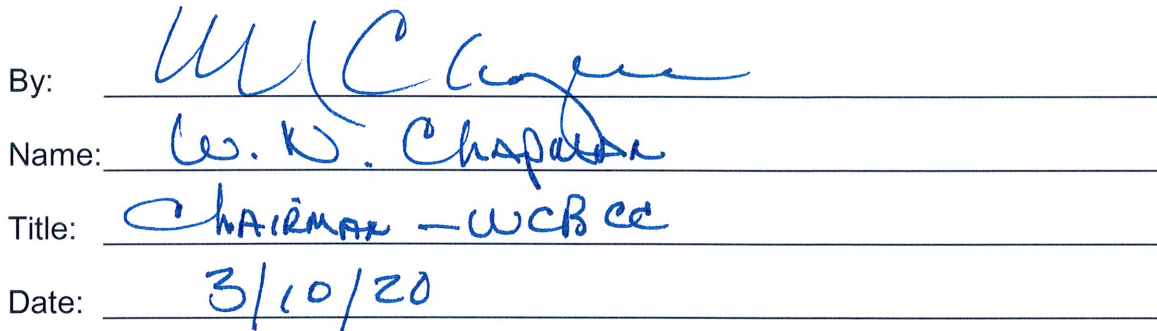 By: W N Chapman
Name: W. N. Chapman
Title: Chairman - WCBCC
Date: 3/10/20